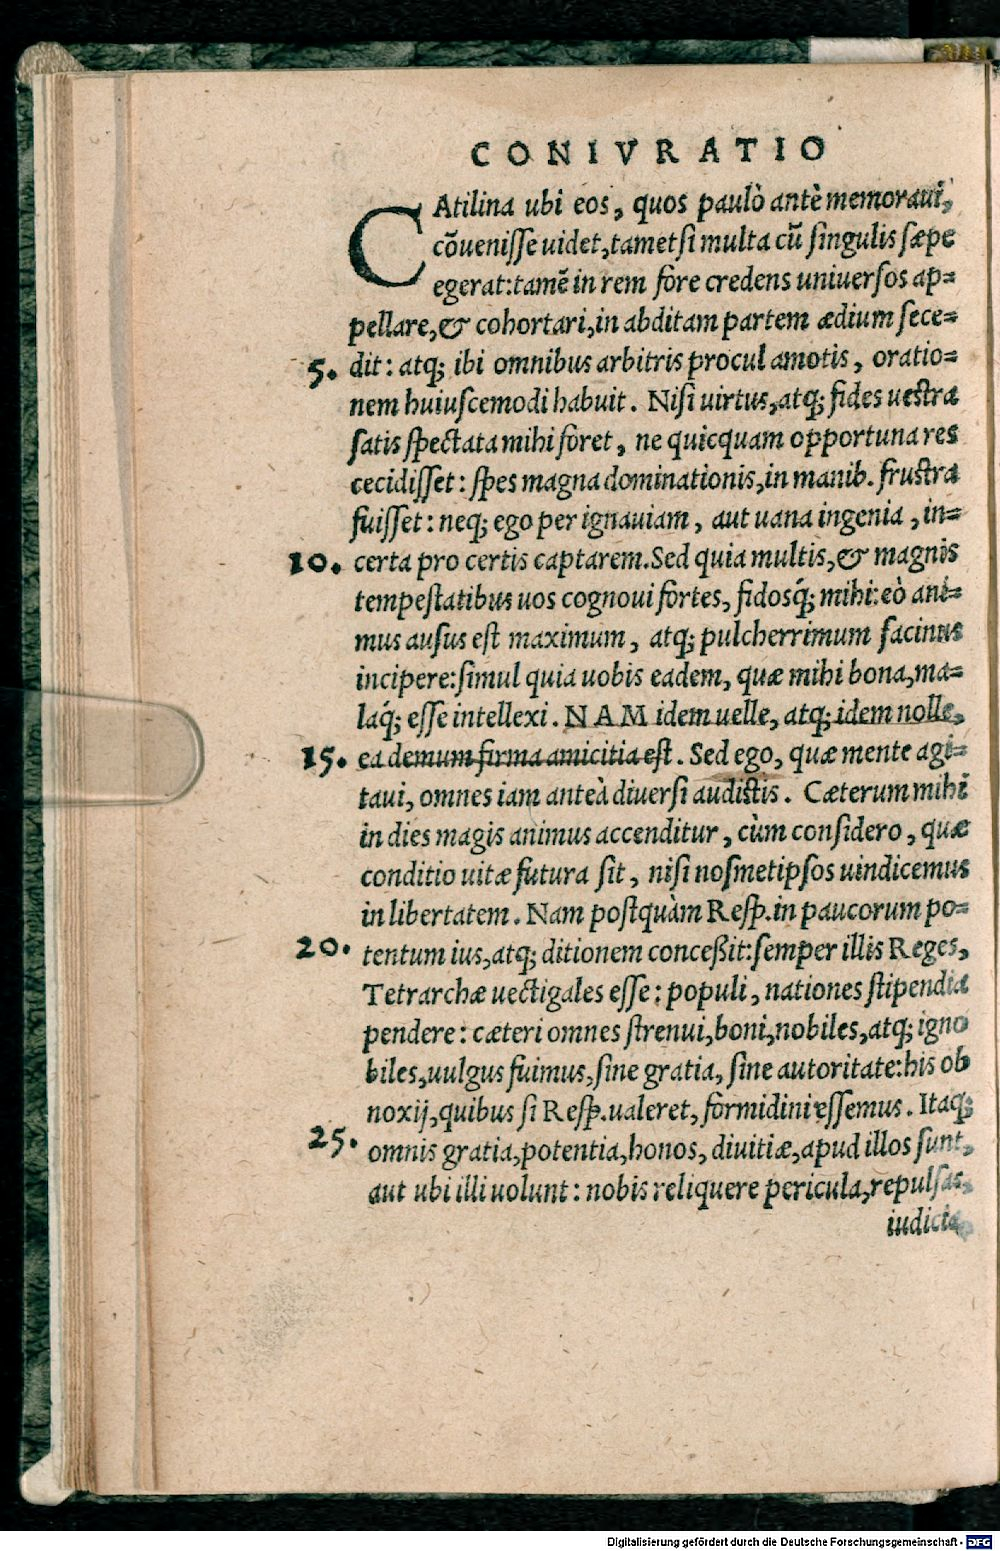 CONIVRATIO
CAtilina ubi eos, quos paulò antè memoraui,
cõuenisse uidet, tametsi multa cũ singulis sæpe
egerat: tamẽ in rem fore credens uniuersos ap=
pellare, & cohortari, in abditam partem ædium sece=
5. dit: atq; ibi omnibus arbitris procul amotis, oratio=
nem huiuscemodi habuit. Nisi uirtus, atq; fides uestra
satis spectata mihi foret, ne quicquam opportuna res
cecidisset: spes magna dominationis, in manib. frustra
fuisset: neq; ego per ignauiam, aut uana ingenia, in=
10. certa pro certis captarem. Sed quia multis, & magnis
tempestatibus uos cognoui fortes, fidosq́; mihi: eò ani=
mus ausus est maximum, atq; pulcherrimum facinus
incipere: simul quia uobis eadem, quæ mihi bona, ma=
laq́; esse intellexi. NAM idem uelle, atq; idem nolle,
15. ea demum firma amicitia est. Sed ego, quæ mente agi=
taui, omnes iam anteà diuersi audistis. Cæterum mihi
in dies magis animus accenditur, cùm considero, quæ
conditio uitæ futura sit, nisi nosmetipsos uindicemus
in libertatem. Nam postquàm Resp. in paucorum po=
20. tentum ius, atq; ditionem conceßit: semper illis Reges,
Tetrarchæ uectigales esse: populi, nationes stipendia
pendere: cæteri omnes strenui, boni, nobiles, atq; igno
biles, uulgus fuimus, sine gratia, sine autoritate: his ob
noxij, quibus si Resp. ualeret, formidini essemus. Itaq;
25. omnis gratia, potentia, honos, diuitiæ, apud illos sunt,
aut ubi illi uolunt: nobis reliquere pericula, repulsas,
iudicia
Digitalisierung gefördert durch die Deutsche Forschungsgemeinschaft - DFG